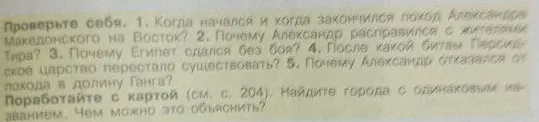 Проверьте себя. 1. Когда начался и когда закончился поход Александра
Македонского на Восток? 2. Почему Александр расправился с жителями
Тира? 3. Почему Египет сдался без боя? 4. После какой битвы Персид-
ское царство перестало существовать? 5. Почему Александр отказался от
похода в долину Ганга?
Поработайте с картой (см. с. 204). Найдите города с одинаковым на-
званием. Чем можно это объяснить?